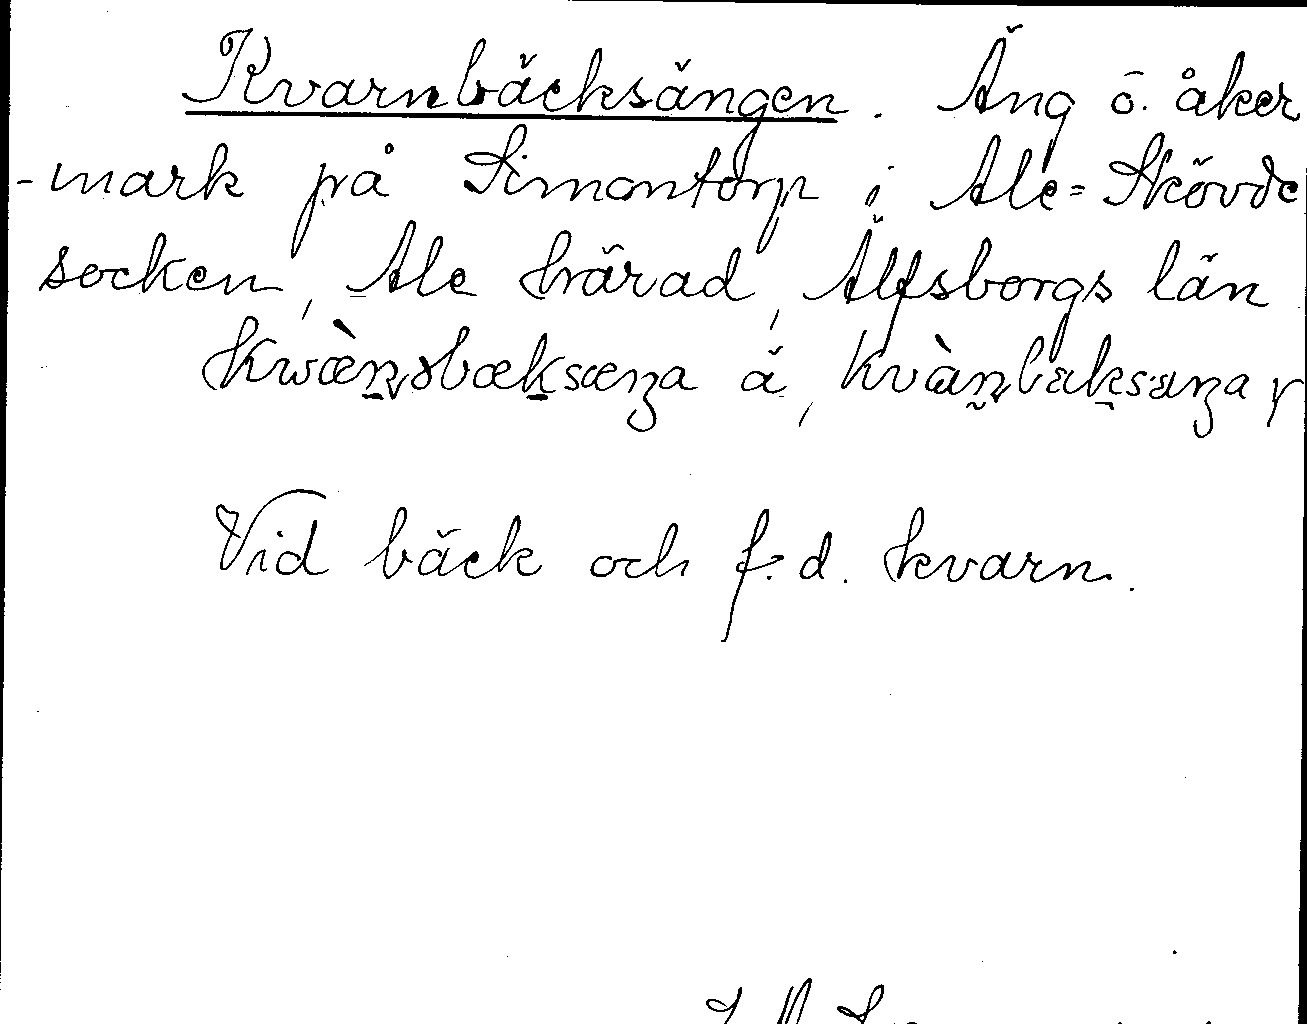 Kvarnbäcksängen. Äng o. åker
-mark på Simontorp i Ale-Skövde
socken, Ale härad, Älfsborgs län
Vid bäck och f.d. kvarn.